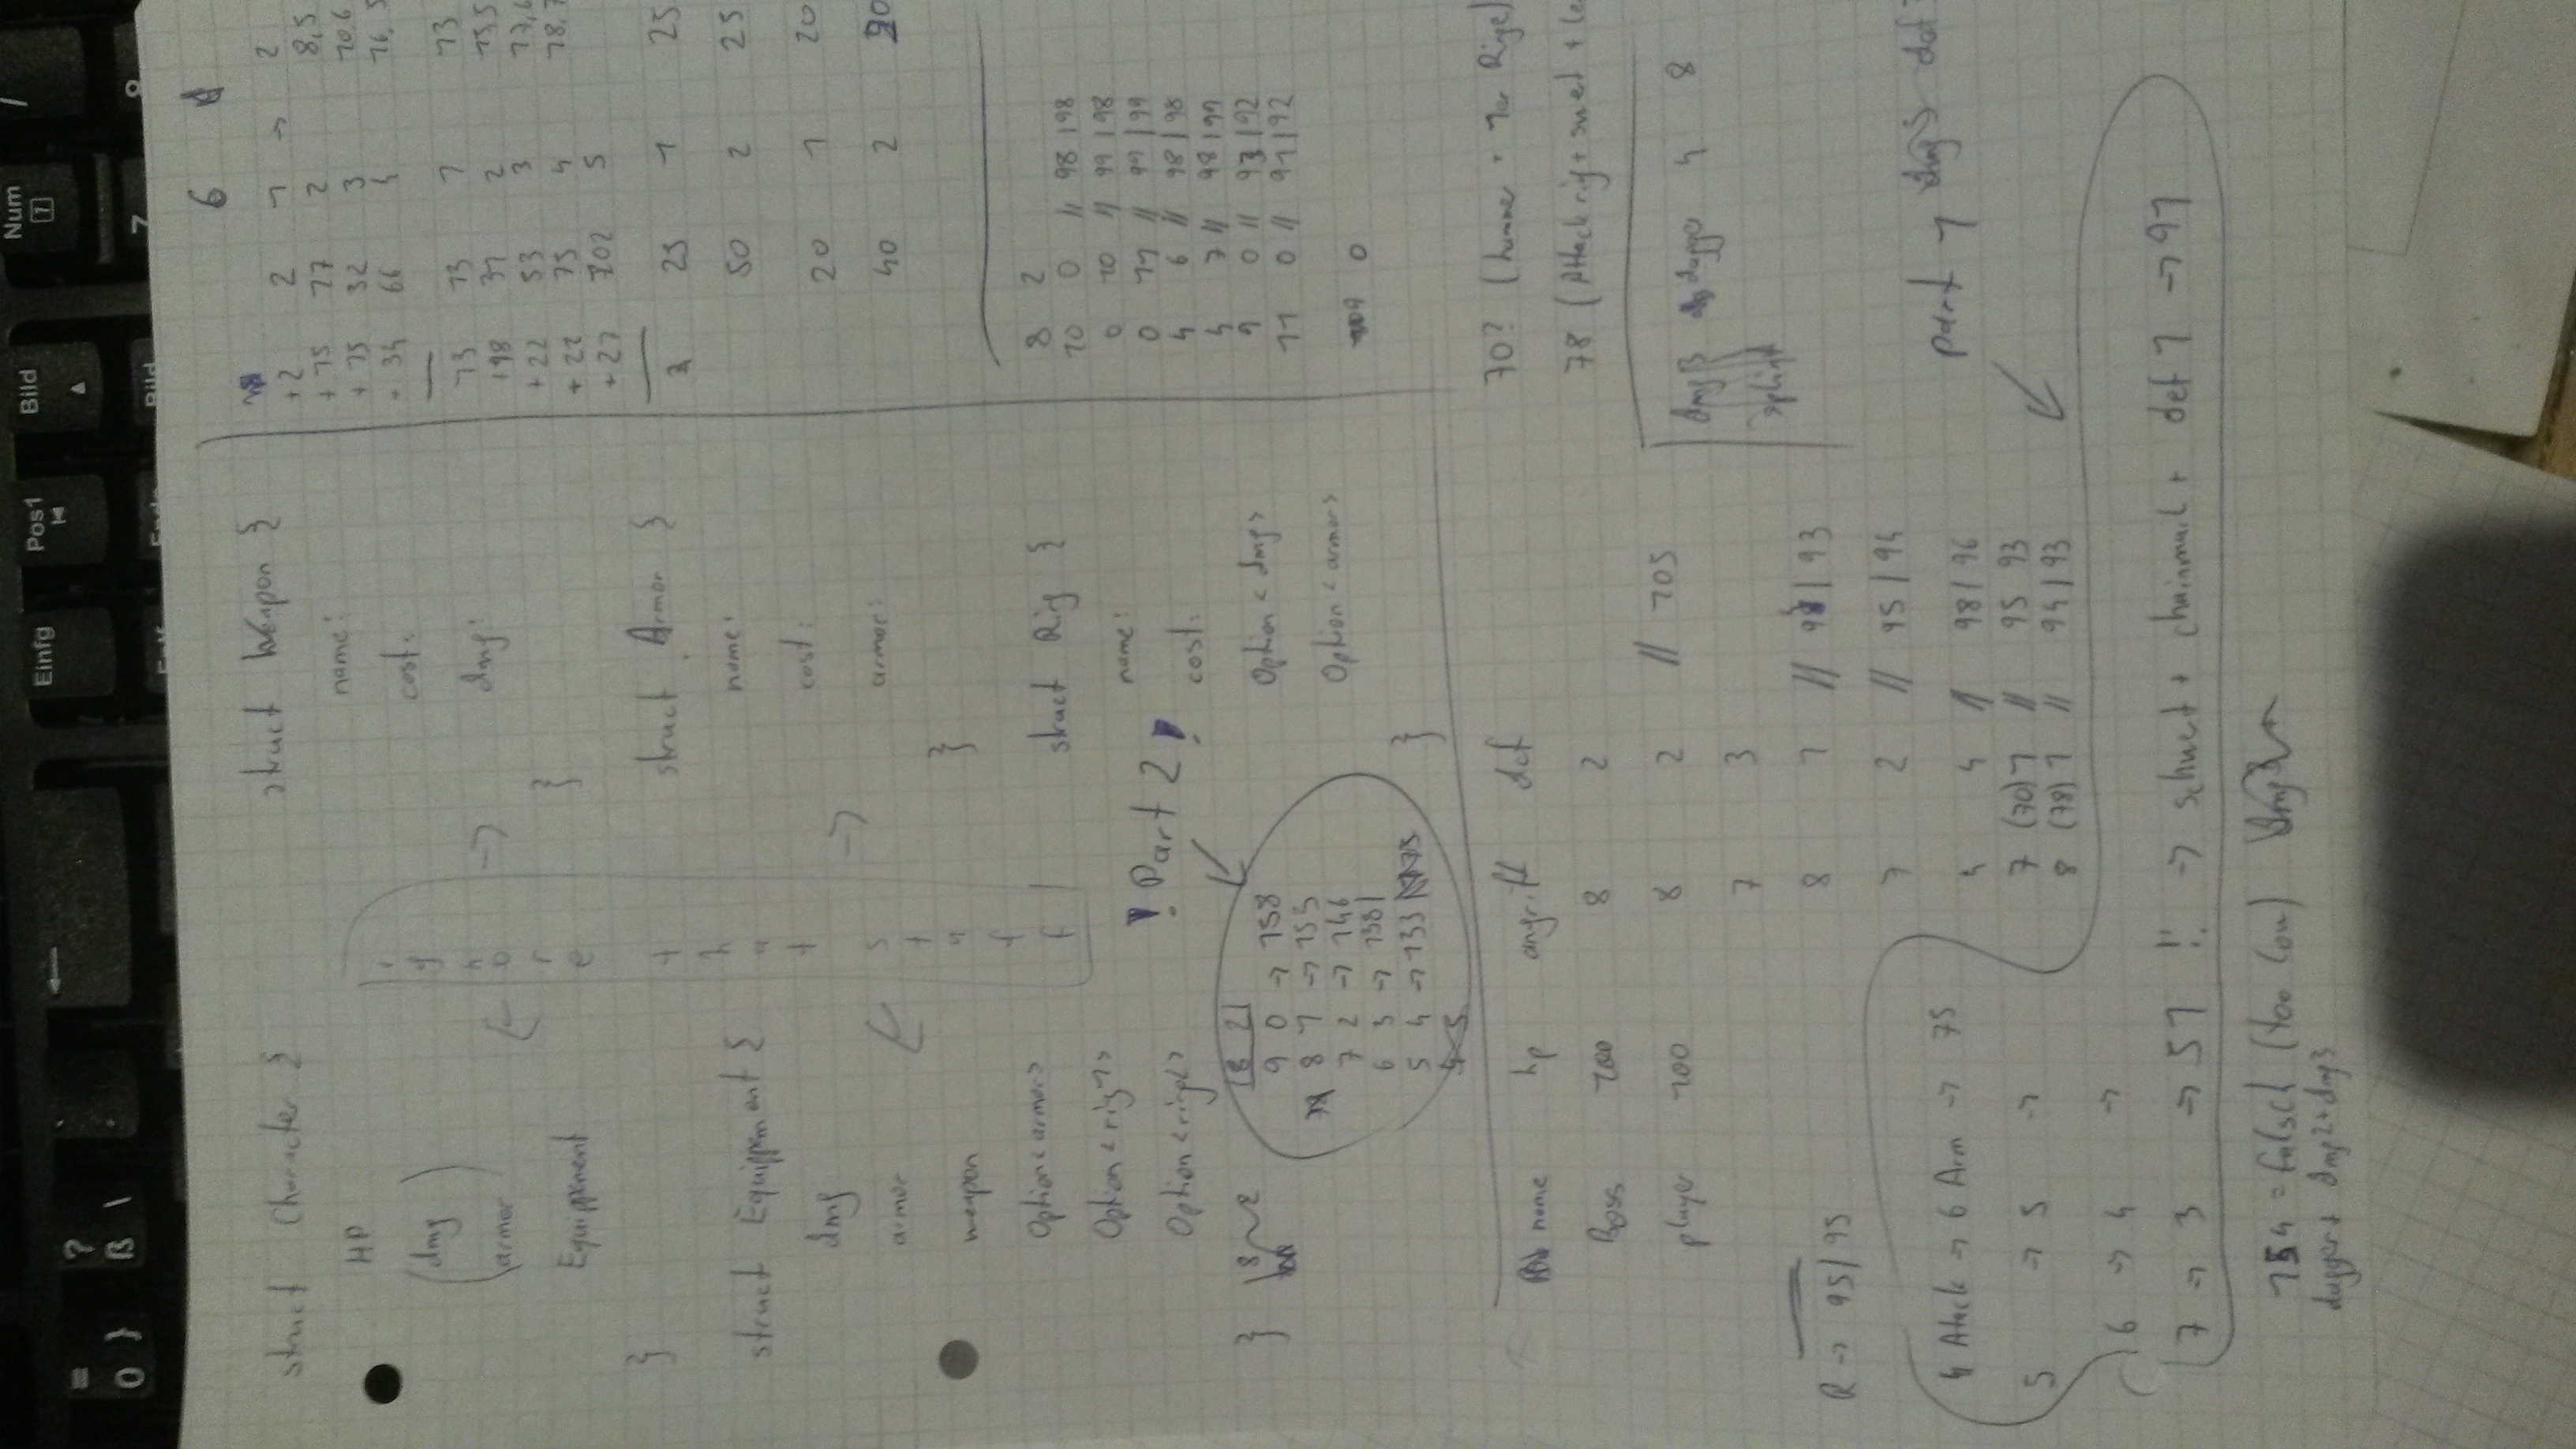 = ? ` ← Einfg Pos1 Bild Num /
0 } ß \ ´ 7
Entf Ende Bild 7 8
struct Character {
HP
(dmg
armor)
Equippment
}
struct Equippement {
dmg
armor
weapon
Option<armor>
Option<ring1>
Option<ring2>
}
ignore that stuff
struct Weapon {
name:
cost:
dmg:
}
struct Armor {
name:
cost:
armor:
}
struct Ring {
name:
cost:
Option<dmg>
Option<armor>
}
6
+2 2 1 -> 2
+15 17 2 8,5
+15 32 3 10.6
+34 66 4 16,5
13 13 1 13
+18 31 2 15,5
+22 53 3 17,6
+22 75 4 18,7
+27 102 5
25 1 25
50 2 25
20 1 20
40 2 20
8 2
10 0 // 98 | 98
0 10 // 99 | 98
0 11 // 99 | 99
4 6 // 98 | 98
4 7 // 98 | 99
9 0 // 93 | 92
11 0 // 91 | 92
109 0
! Part 2 !
8 2
9 0 -> 158
8 1 -> 153
7 2 -> 146
6 3 -> 138
5 4 -> 133
4 5
name hp angriff def
Boss 100 8 2
player 100 8 2 // 105
7 3
8 1 // 94 | 93
7 2 // 95 | 94
4 4 // 98 | 96
7 (70) 1 // 95 93
8 (78) 1 // 94 | 93
70? (hammer + 1er Ringe)
78 (Attack ring + swert + le
dmg 3 dagger 4 8
splint
R -> 95 | 95
part 1 dmg 3 def
4 Atack -> 6 Arm -> 75
5 -> 5 ->
6 -> 4 ->
7 -> 3 -> 51 !! -> schwert + chainmail + def 1 -> 91
154 = falsch (too low)
dagger + dmg2 + dmg3